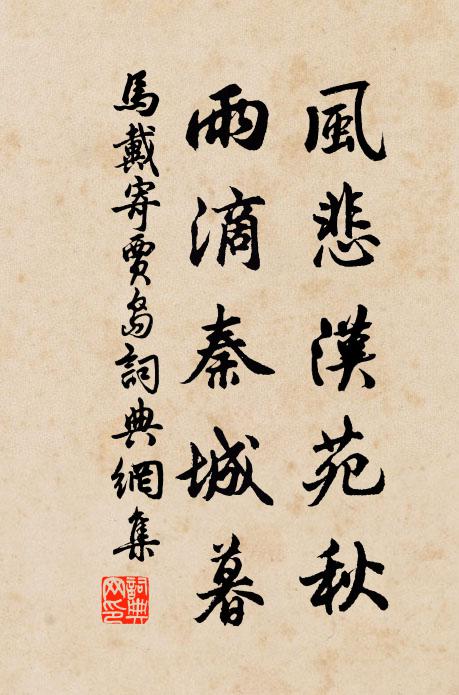 風悲漢苑秋
雨滴秦城暮
馬戴寄賈島詞典網集
詞典網印